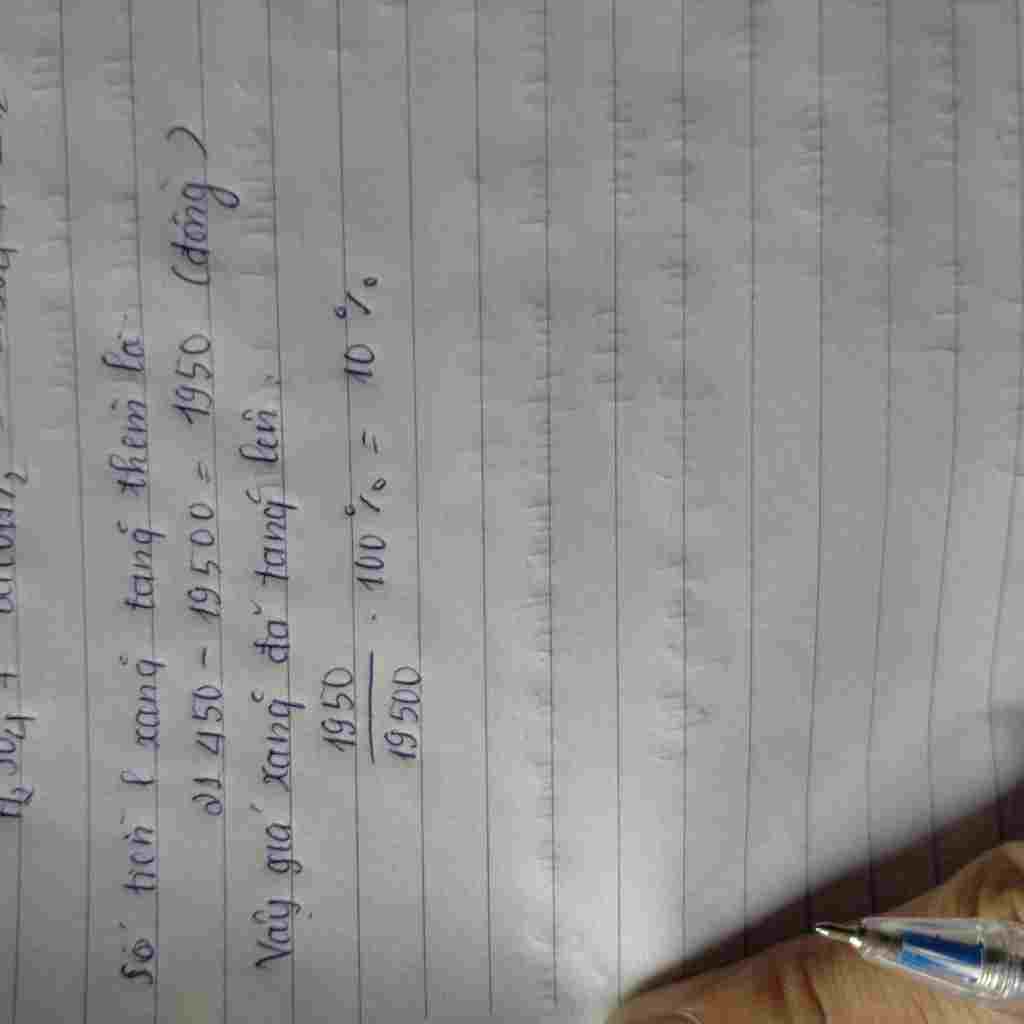 Số tiền l xăng tăng thêm là
21450 - 19500 = 1950 (đồng)
Vậy giá xăng đã tăng lên
1950/19500 . 100% = 10%